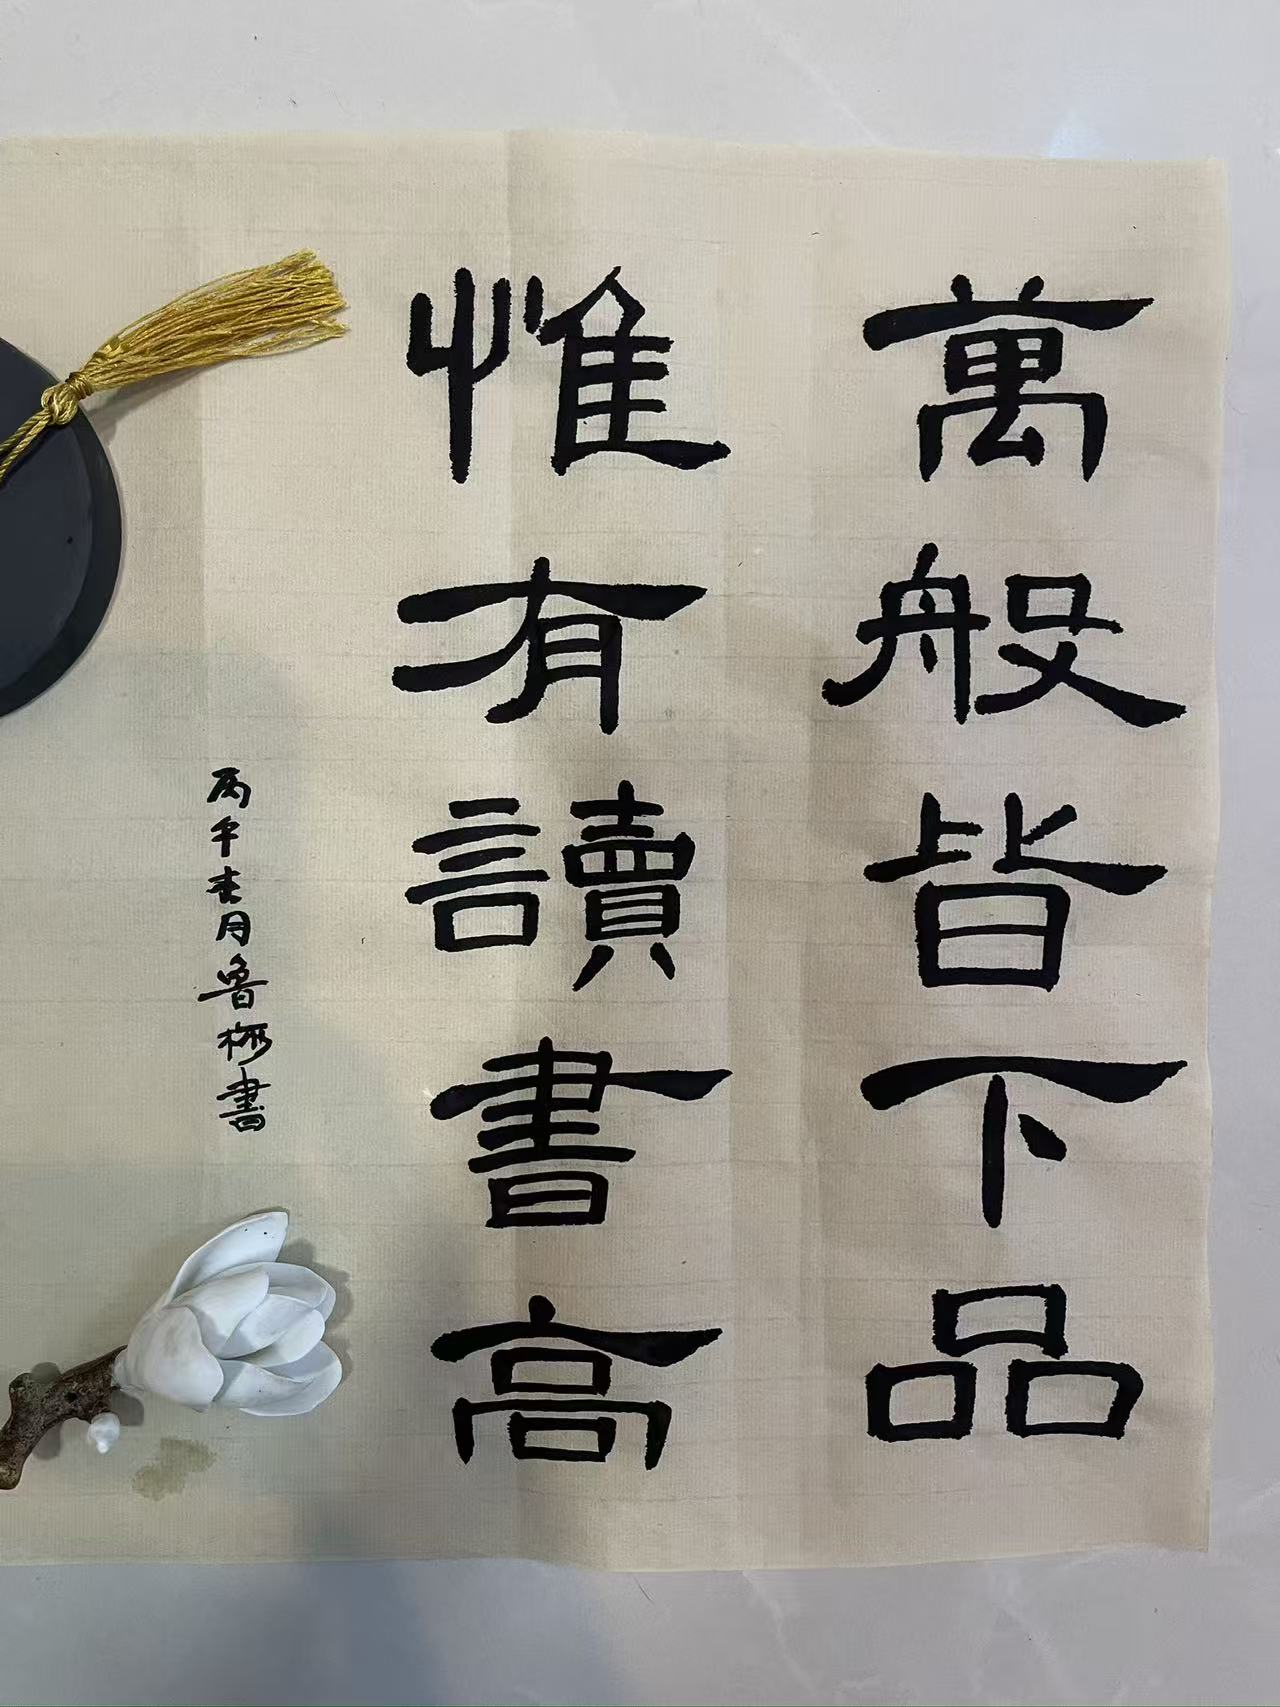 萬般皆下品
惟有讀書高
丙午春月魯柳書